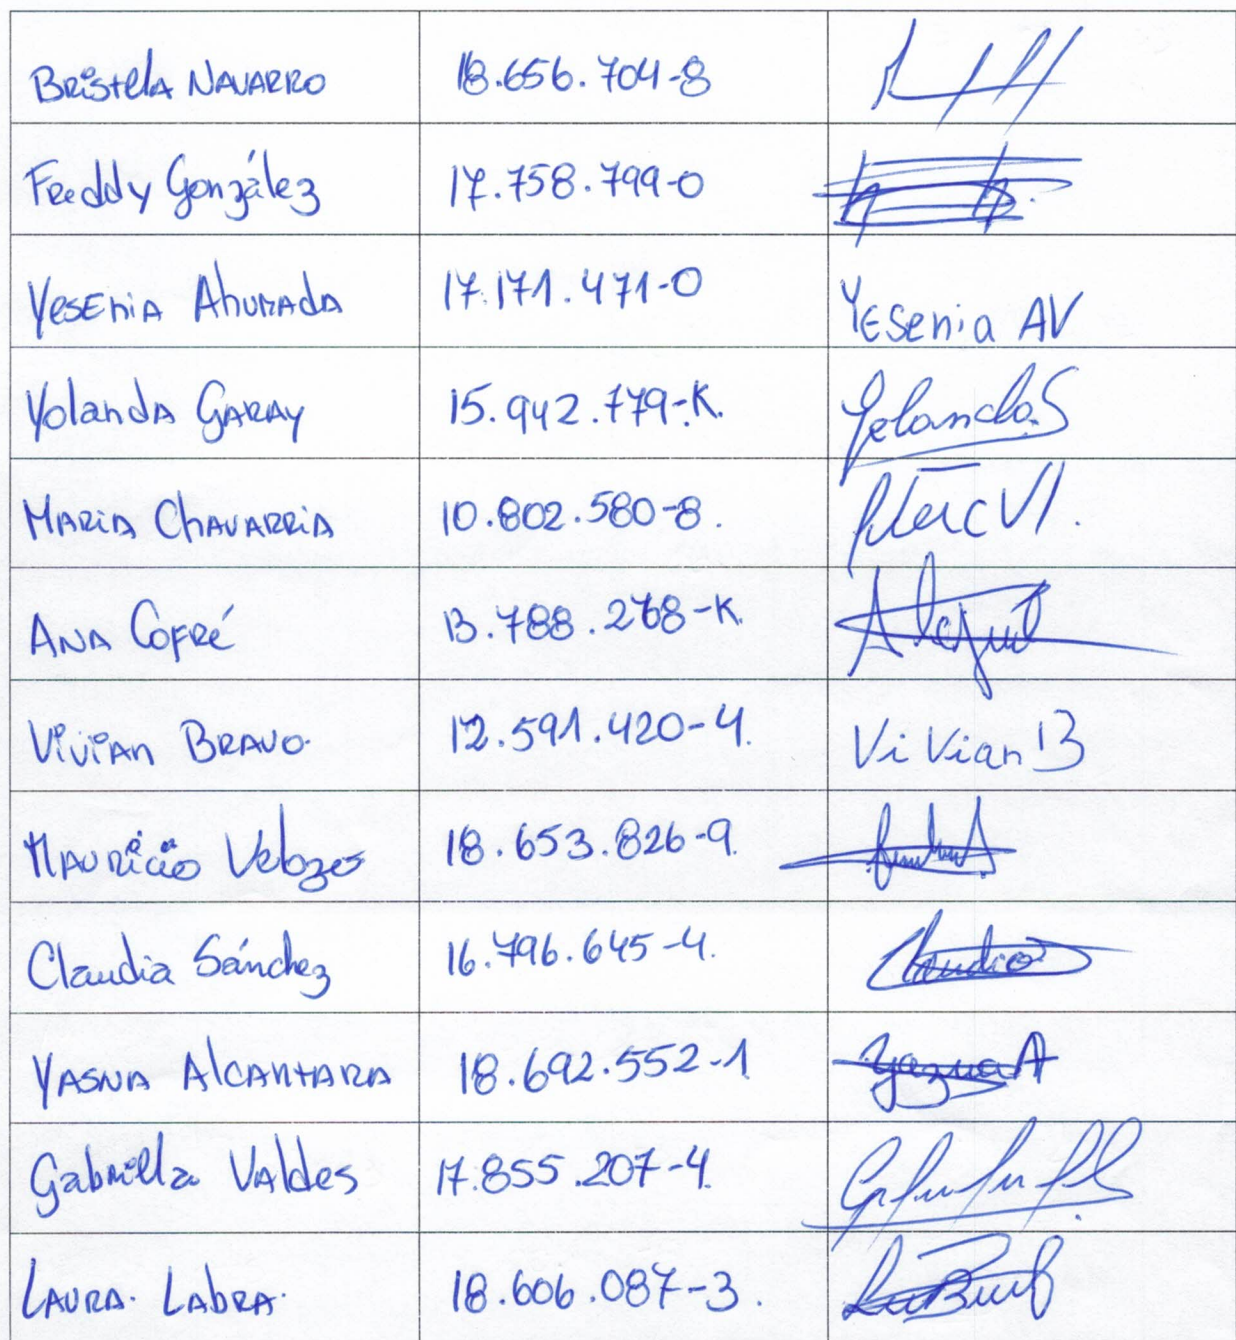 Bristela Navarro 18.656.704-8
Freddy González 17.758.799-0
Yesenia Ahumada 17.171.471-0 Yesenia AV
Yolanda Garay 15.942.779-K. Yolanda.S
Maria Chavarria 10.802.580-8.
Ana Cofré 13.788.268-K.
Vivian Bravo. 12.591.420-4. ViVian B
Mauricio Velozo 18.653.826-9.
Claudia Sánchez 16.796.645-4. Claudia
Yasna Alcantara 18.692.552-1 Yazna A
Gabriella Valdes 17.855.207-4.
Laura. Labra. 18.606.087-3.